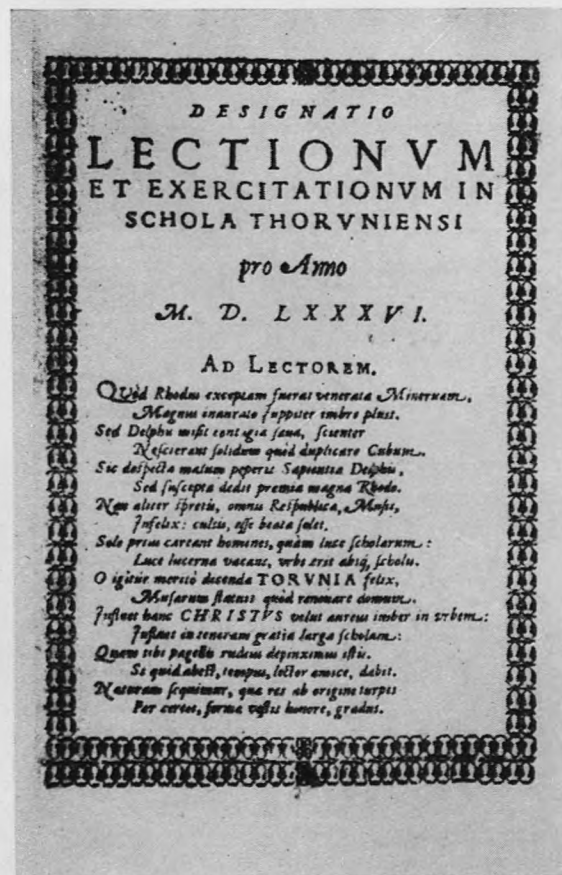 DESIGNATIO
LECTIONVM
ET EXERCITATIONVM IN
SCHOLA THORVNIENSI
pro Anno
M. D. LXXXVI.
AD LECTOREM.
QVòd Rhodus exceptam fuerat venerata Mineruam,
Magnus inaurato Juppiter imbre pluit.
Sed Delphis misit contagia saeua, scienter
Nescierant solidum quòd duplicare Cubum.
Sic despecta malum peperit Sapientia Delphis,
Sed suscepta dedit premia magna Rhodo.
Non aliter spretis, omnis Respublica, Musis,
Infelix: cultis, esse beata solet.
Sole prius careant homines, quàm luce scholarum:
Luce lucerna vacans, vrbs erit absq; scholis.
O igitur meritò dicenda TORVNIA felix,
Musarum statuit quòd renouare domum.
Influet hanc CHRISTVS velut aureus imber in vrbem:
Influet in teneram gratia larga scholam:
Quam tibi pagellis rudibus depinximus istis.
Si quid abest, tempus, lector amice, dabit.
Naturam sequimur, qua res ab origine turpis
Per certos, forma vestis honore, gradus.